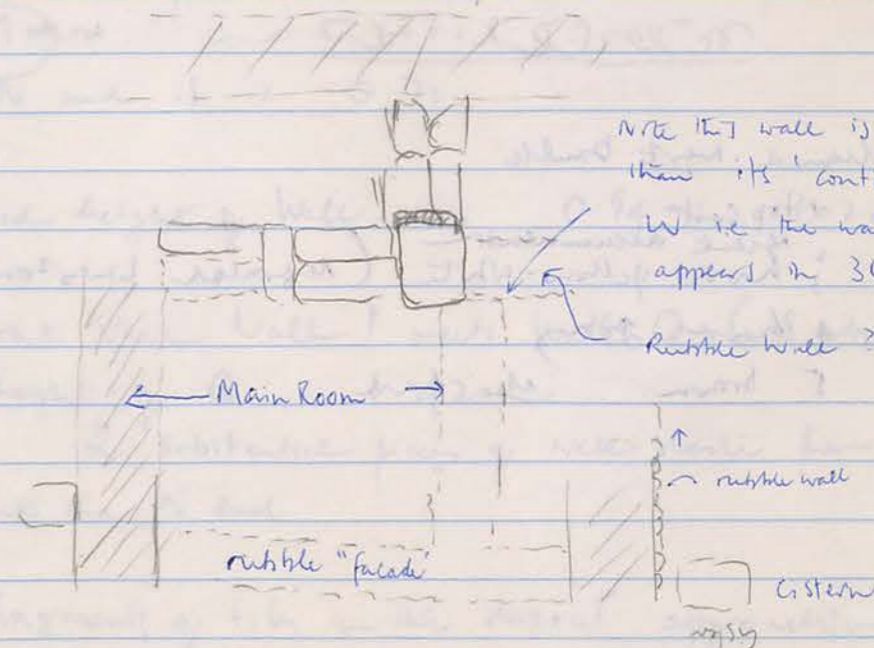 Note this wall is
than its' cont
W i.e the wa
appears in 3
Rubble Wall
Main Room
rubble wall
rubble "facade"
Cistern